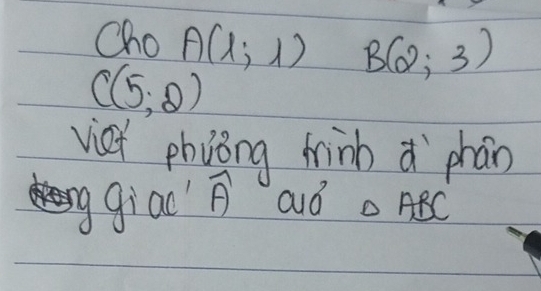 Cho A(1; 1) B(2; 3)
C(5; 0)
Viết phường trình đ' phân
g giác Â cuả △ ABC